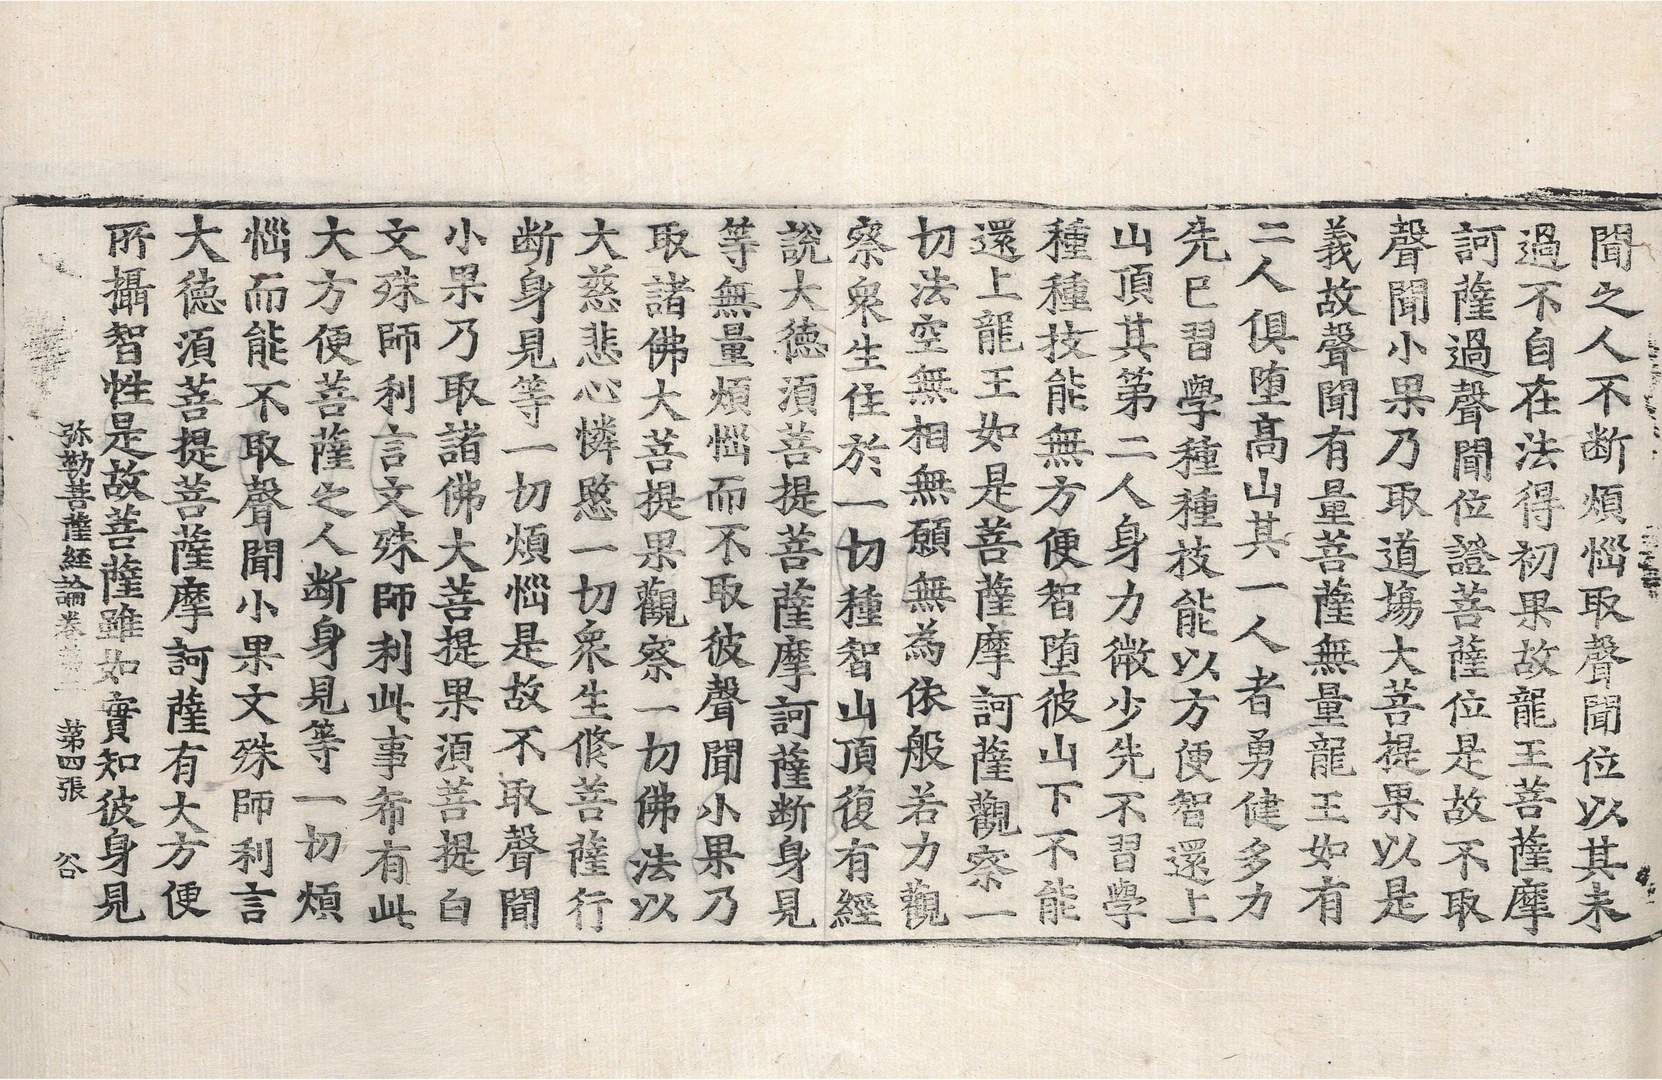 聞之人不断煩惱取聲聞位以其未
過不自在法得初果故龍王菩薩摩
訶薩過聲聞位證菩薩位是故不取
聲聞小果乃取道場大菩提果以是
義故聲聞有量菩薩無量龍王如有
二人俱堕高山其一人者勇健多力
先已習學種種技能以方便智還上
山頂其第二人身力微少先不習學
種種技能無方便智堕彼山下不能
還上龍王如是菩薩摩訶薩觀察一
切法空無相無願無為依般若力觀
察衆生住於一切種智山頂復有經
說大德湏菩提菩薩摩訶薩断身見
等無量煩惱而不取彼聲聞小果乃
取諸佛大菩提果觀察一切佛法以
大慈悲心憐愍一切衆生修菩薩行
断身見等一切煩惱是故不取聲聞
小果乃取諸佛大菩提果湏菩提白
文殊師利言文殊師利此事希有此
大方便菩薩之人断身見等一切煩
惱而能不取聲聞小果文殊師利言
大德湏菩提菩薩摩訶薩有大方便
所攝智性是故菩薩雖如實知彼身見
弥勒菩薩経論卷 第四張 谷